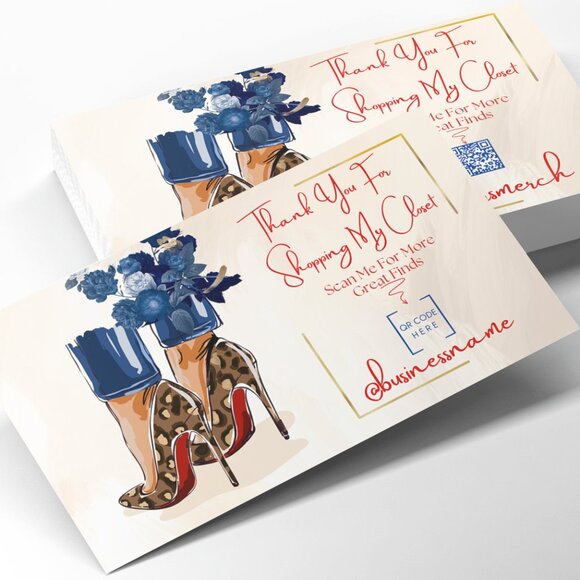 Thank You For
Shopping My Closet
Me For More
eat Finds
smerch
Thank You For
Shopping My Closet
Scan Me For More
Great Finds
QR CODE
HERE
@businessname